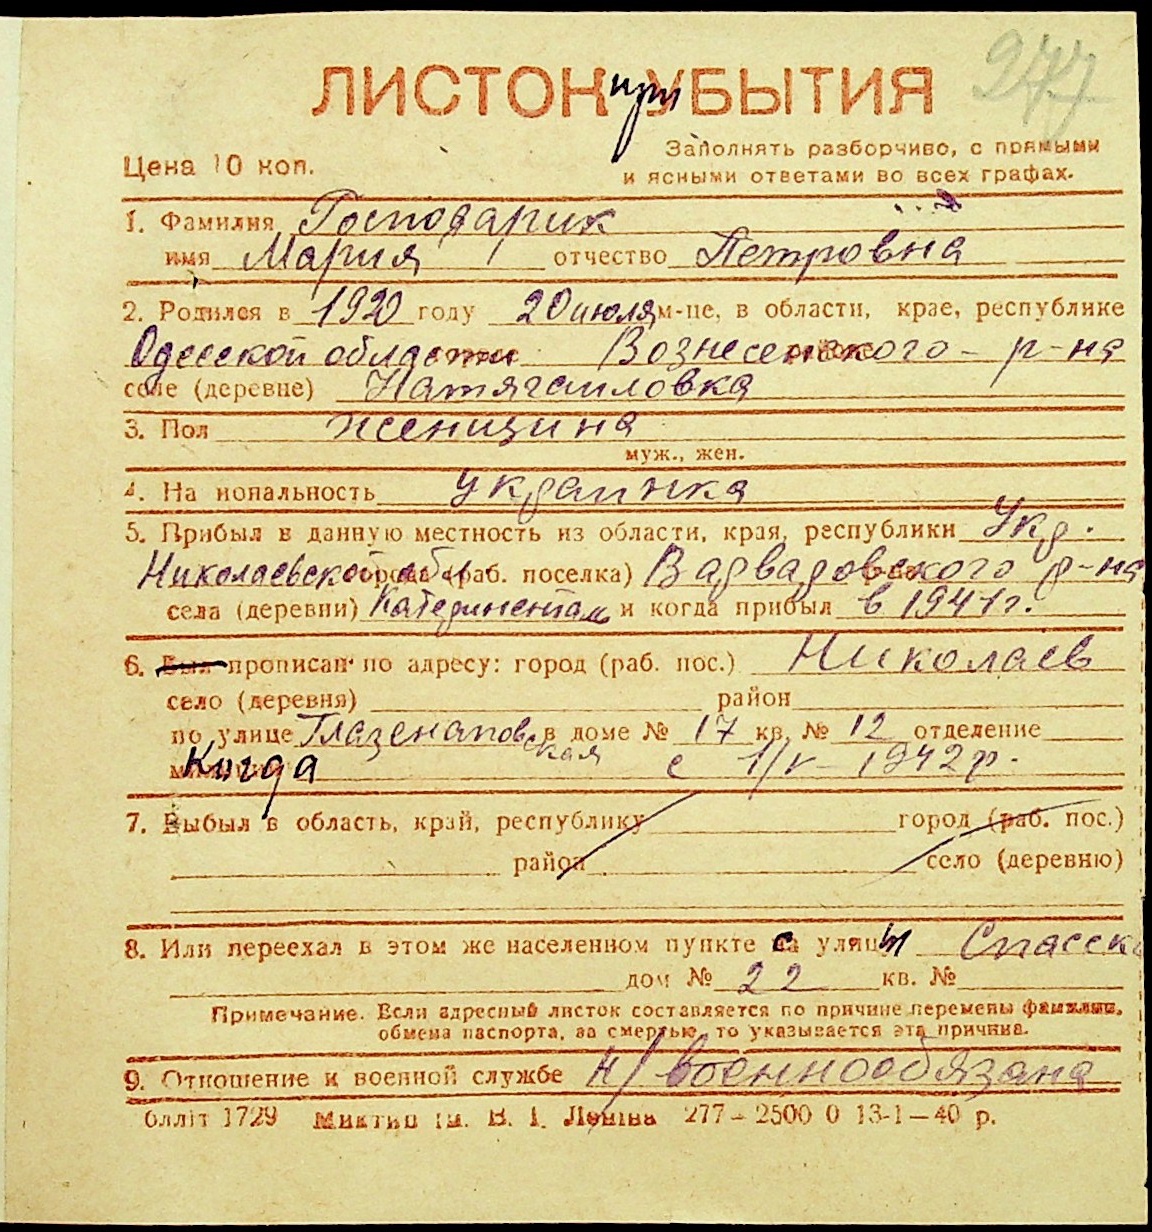 277
ЛИСТОК при УБЫТИЯ
Цена 10 коп.
Заполнять разборчиво, с прямыми
и ясными ответами во всех графах.
1. Фамилия Господарик
имя Мария отчество Петровна
2. Родился в 1920 году 20 июля м-це, в области, крае, республике
Одесской области Вознесенского р-на
селе (деревне) Натягайловка
3. Пол женщина
муж., жен.
4. На иональность украинка
5. Прибыл в данную местность из области, края, республики Укр.
Николаевской обл города (раб. поселка) Варваровского р-на
села (деревни) Катериненталь и когда прибыл в 1941 г.
6. Был прописан по адресу: город (раб. пос.) Николаев
село (деревня) район
по улице Глазенаповская в доме № 17 кв. № 12 отделение
Когда с 1/V 1942 р.
7. Выбыл в область, край, республику город (раб. пос.)
район село (деревню)
8. Или переехал в этом же населенном пункте с улицы Спасск
дом № 22 кв. №
Примечание. Если адресный листок составляется по причине перемены фамилии,
обмена паспорта, за смертью, то указывается эта причина.
9. Отношение к военной службе н/военнообязана
блліт 1729 Миктип ім. В. І. Леніна 277—2500 0 13-1—40 р.